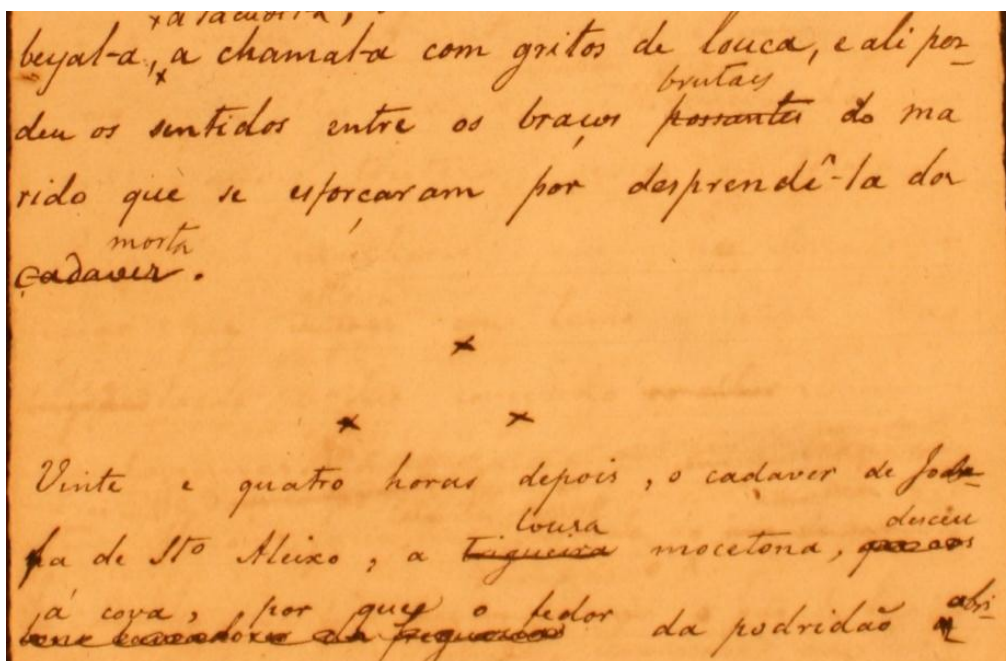 x a sacudil-a,
beijal-a, x a chamal-a com gritos de louca, e ali per-
brutaes
deu os sentidos entre os braços possantes do ma
rido que se esforçaram por desprendê-la da
morta
cadaver.
x
x x
Vinte e quatro horas depois, o cadaver de Jose-
loura desceu
fa de Sto Aleixo, a trigueira mocetona,
á cova, por que o fedor da podridão abri-